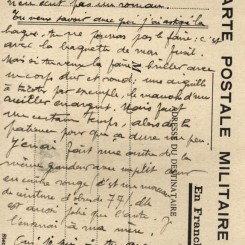 n'en écrit pas un roman.
Tu veux savoir avec quoi j'ai astiqué la
bague. Tu ne pourras pas le faire, c'est
avec la baguette de mon fusil.
Mais si tu veux la faire briller avec
un corps dur et rond : une aiguille
à tricoter par exemple, le manche d'une
cuiller en argent. Mais faut
un certain temps, alors de la
patience pour que ça dure un peu.
J'en ai fait une autre de la
même grandeur avec
en cuivre rouge (c'est un morceau
de ceinture d'obus 77), elle
est aussi jolie que l'autre, je
l'enverrai à ma mère.
CARTE POSTALE MILITAIRE
ADRESSE DU DESTINATAIRE
En Franc